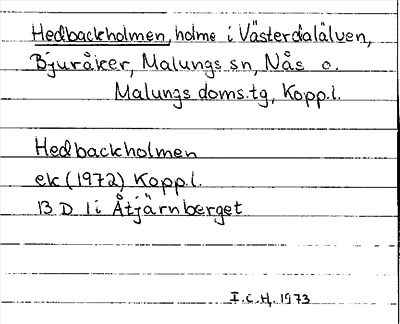 Hedbackholmen, holme i Västerdalälven,
Bjuråker, Malungs sn, Nås o.
Malungs doms.tg, Kopp.l.
Hedbackholmen
ek (1972) Kopp.l.
13 D 1 i Åtjärnberget
I.C.H. 1973